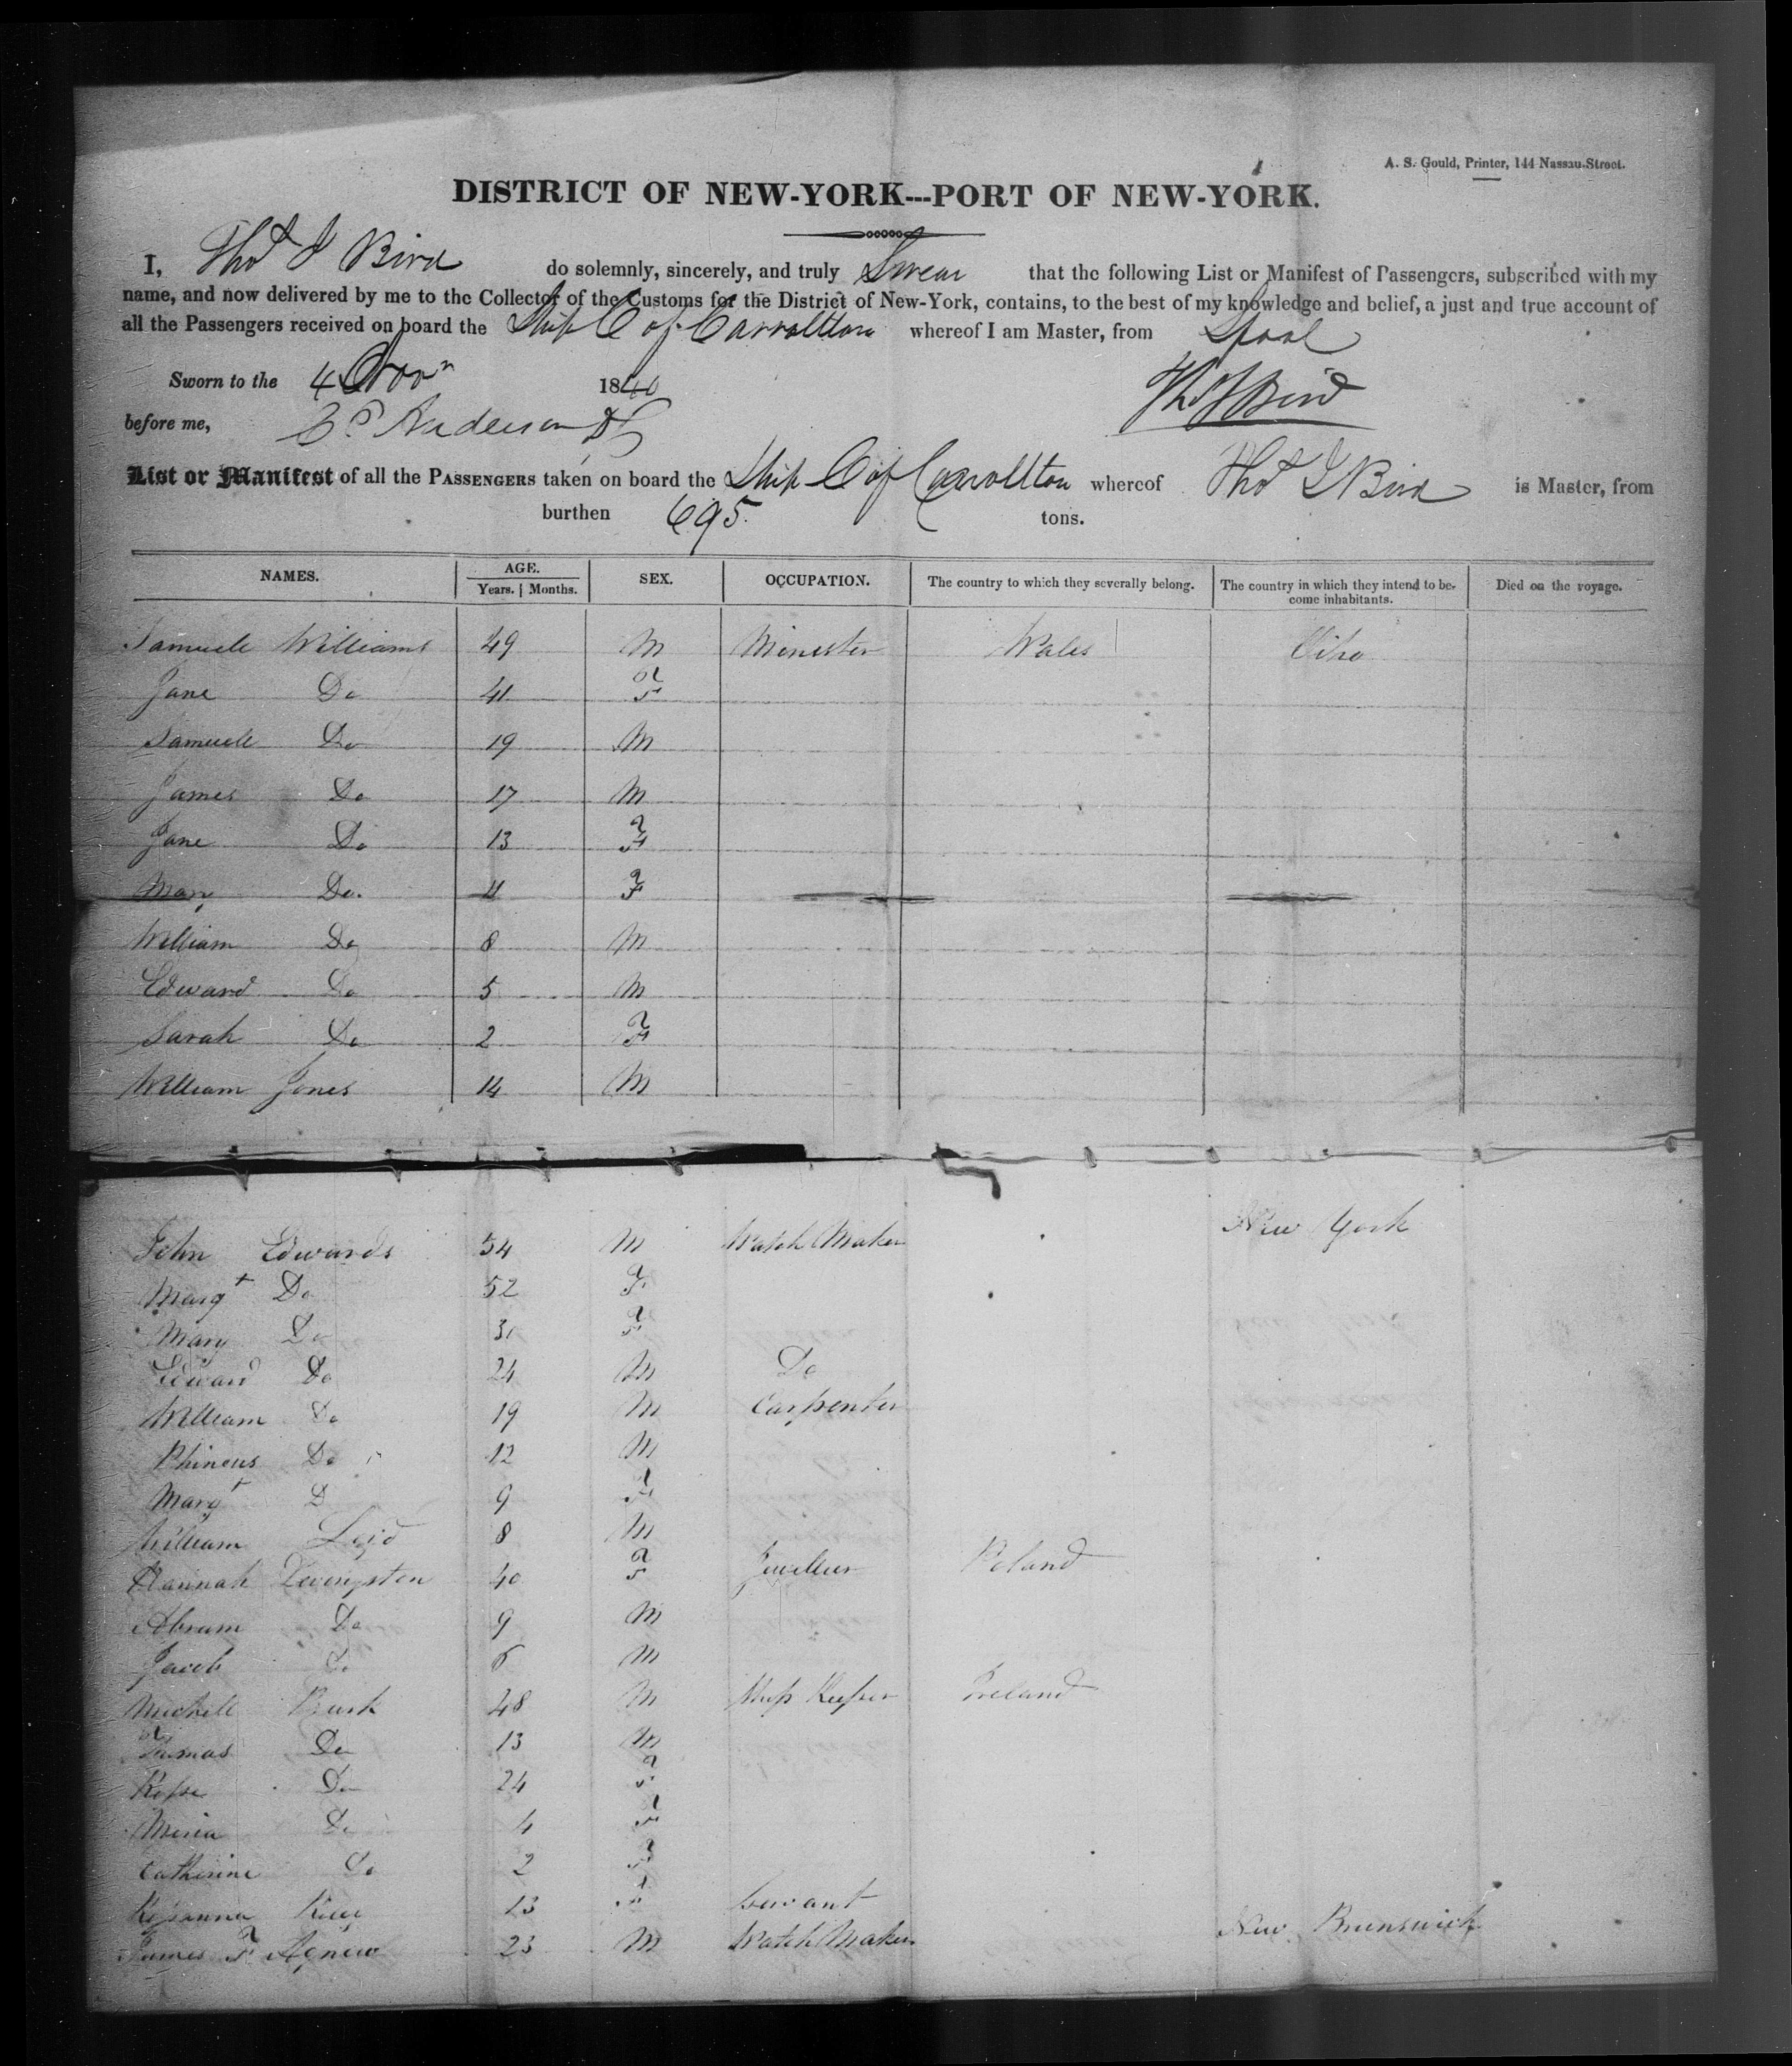 A. S. Gould, Printer, 144 Nassau-Street.
DISTRICT OF NEW-YORK---PORT OF NEW-YORK.
I, Thos J Bird do solemnly, sincerely, and truly Swear that the following List or Manifest of Passengers, subscribed with my
name, and now delivered by me to the Collector of the Customs for the District of New-York, contains, to the best of my knowledge and belief, a just and true account of
all the Passengers received on board the Ship C of Carrollton whereof I am Master, from Lpool
Sworn to the 4 Novr 1840 Thos J Bird
before me, Anderson
List or Manifest of all the PASSENGERS taken on board the Ship C of Carrollton whereof Thos J Bird is Master, from
burthen 695 tons.
NAMES. AGE. SEX. OCCUPATION. The country to which they severally belong. The country in which they intend to be- Died on the voyage.
Years. | Months. come inhabitants.
Samuell Williams 49 M Minister Wales Oiho
Jane Do 41 F
Samuell Do 19 M
James Do 17 M
Jane Do 13 F
Mary Do. 11 F
William Do 8 M
Edward Do 5 M
Sarah Do 2 F
William Jones 14 M
John Edwards 54 M Watch Maker New York
Margt Do 52 F
Mary Do 31 F
Edward Do 24 M Do
William Do 19 M Carpenter
Phineus Do 12 M
Margt D 9 F
William 8 M
Hannah Levingston 40 F Jweller Poland
Abram Do 9 M
Jacob Do 6 M
Michell 48 M Shop Keeper Ireland
Do 13 M
Rosse Do 24 F
Do 4 F
Catherine Do 2 F
Rosanna 13 F Servant
James F Agnew 23 M Watch Maker New Brunswick